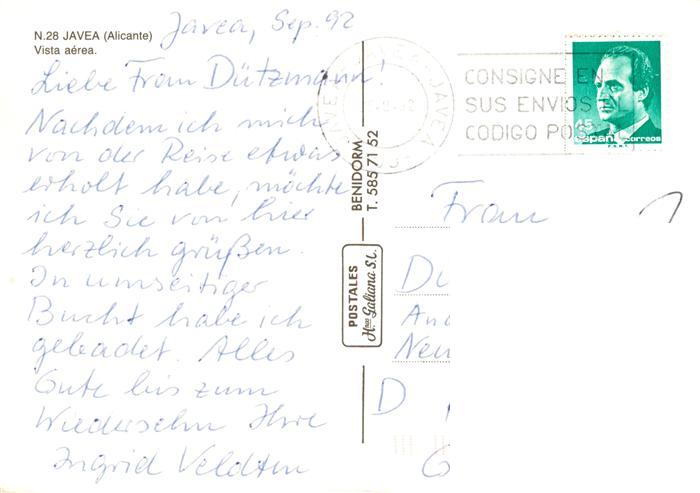 N.28 JAVEA (Alicante)
Vista aérea.
Javea, Sep. 92
Liebe Frau Dützmann,
Nachdem ich mich
von der Reise etwas
erholt habe, möchte
ich Sie von hier
herzlich grüßen.
In umseitiger
Bucht habe ich
gebadet. Alles
Gute bis zum
Wiedersehn Ihre
Ingrid Veldten
POSTALES
Hnos Galiana S.L.
BENIDORM
T. 585 71 52
JAVEA
CONSIGNE EN
SUS ENVIOS EL
CODIGO POS
45
España correos
Frau
D